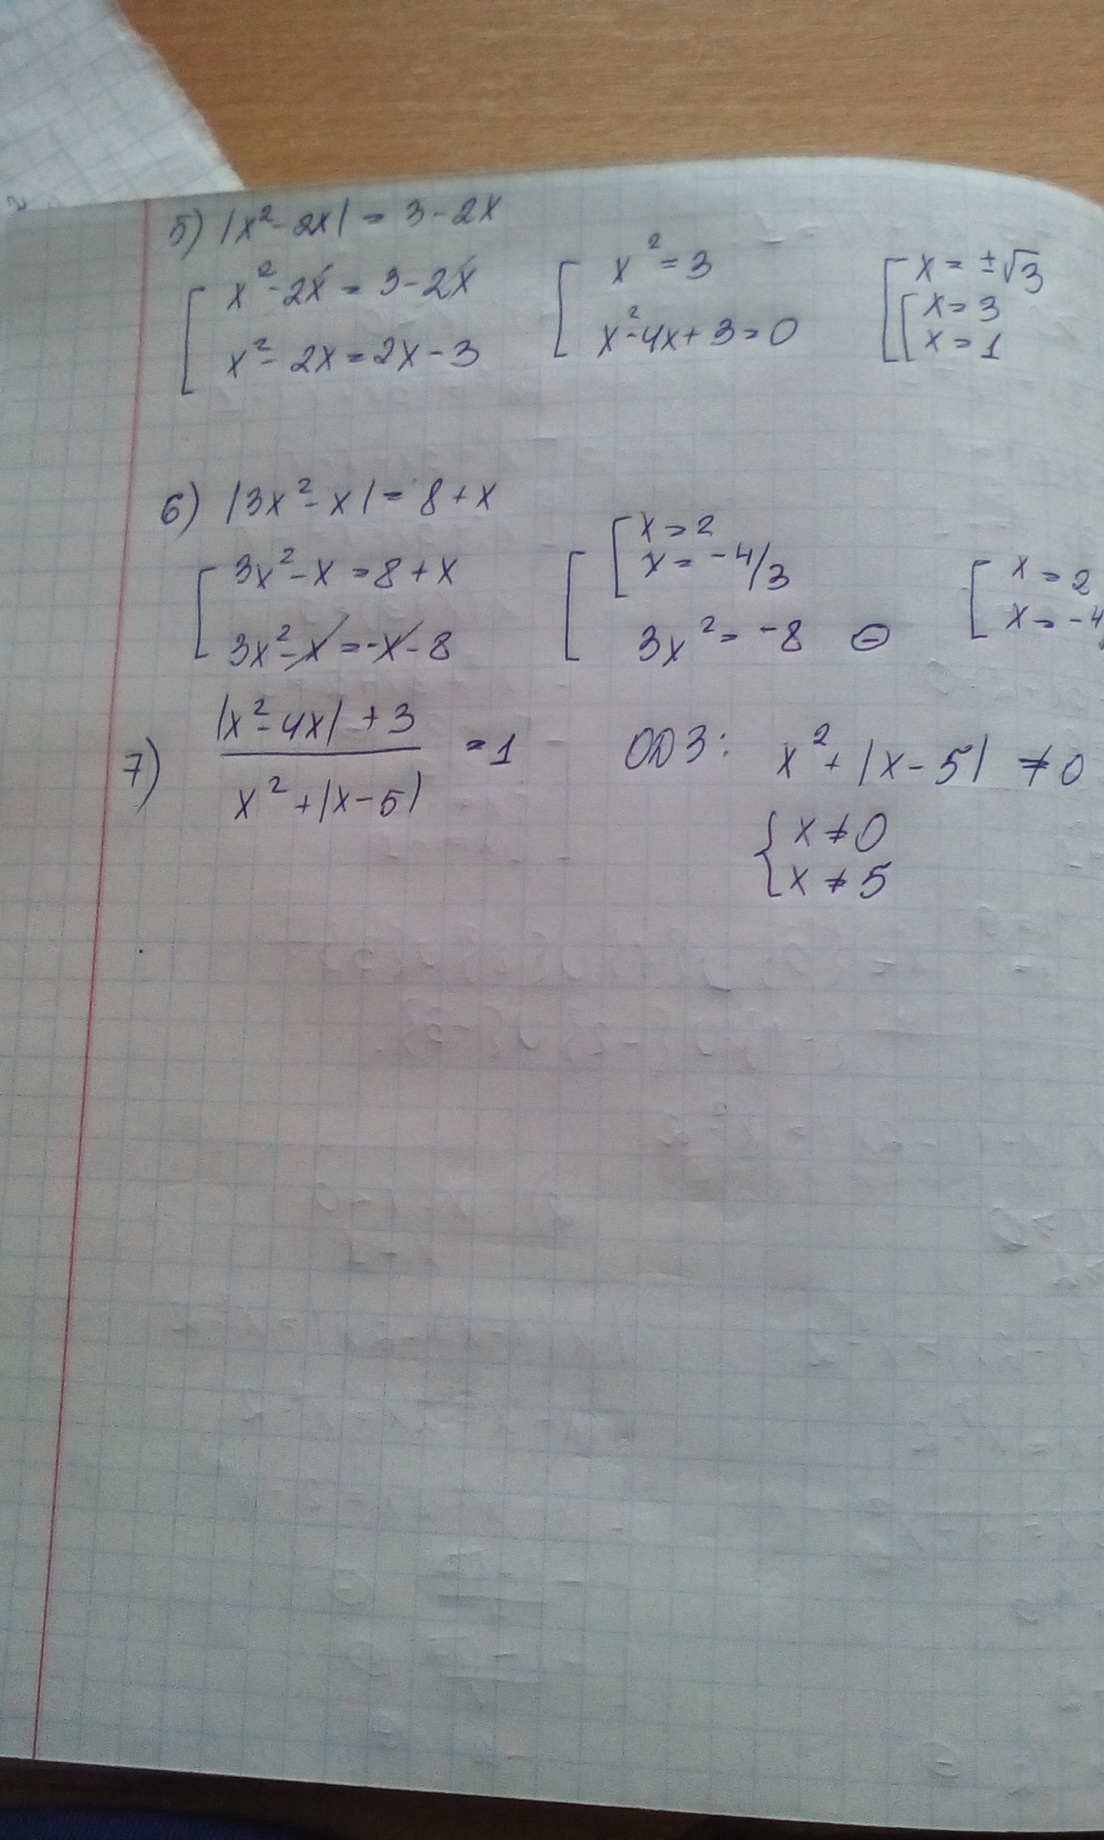 5) |x²-2x| = 3-2x
[ x²-2x = 3-2x [ x² = 3 [ x = ±√3
x²-2x = 2x-3 x²-4x+3=0 [ x = 3
x = 1
6) |3x²-x| = 8+x
[ 3x²-x = 8+x [ [ x = 2
x = -4/3 [ x = 2
3x²-x = -x-8 3x² = -8 ⊖ x = -4
7) |x²-4x|+3 / x²+|x-5| = 1 ОДЗ: x²+|x-5| ≠ 0
{ x ≠ 0
x ≠ 5